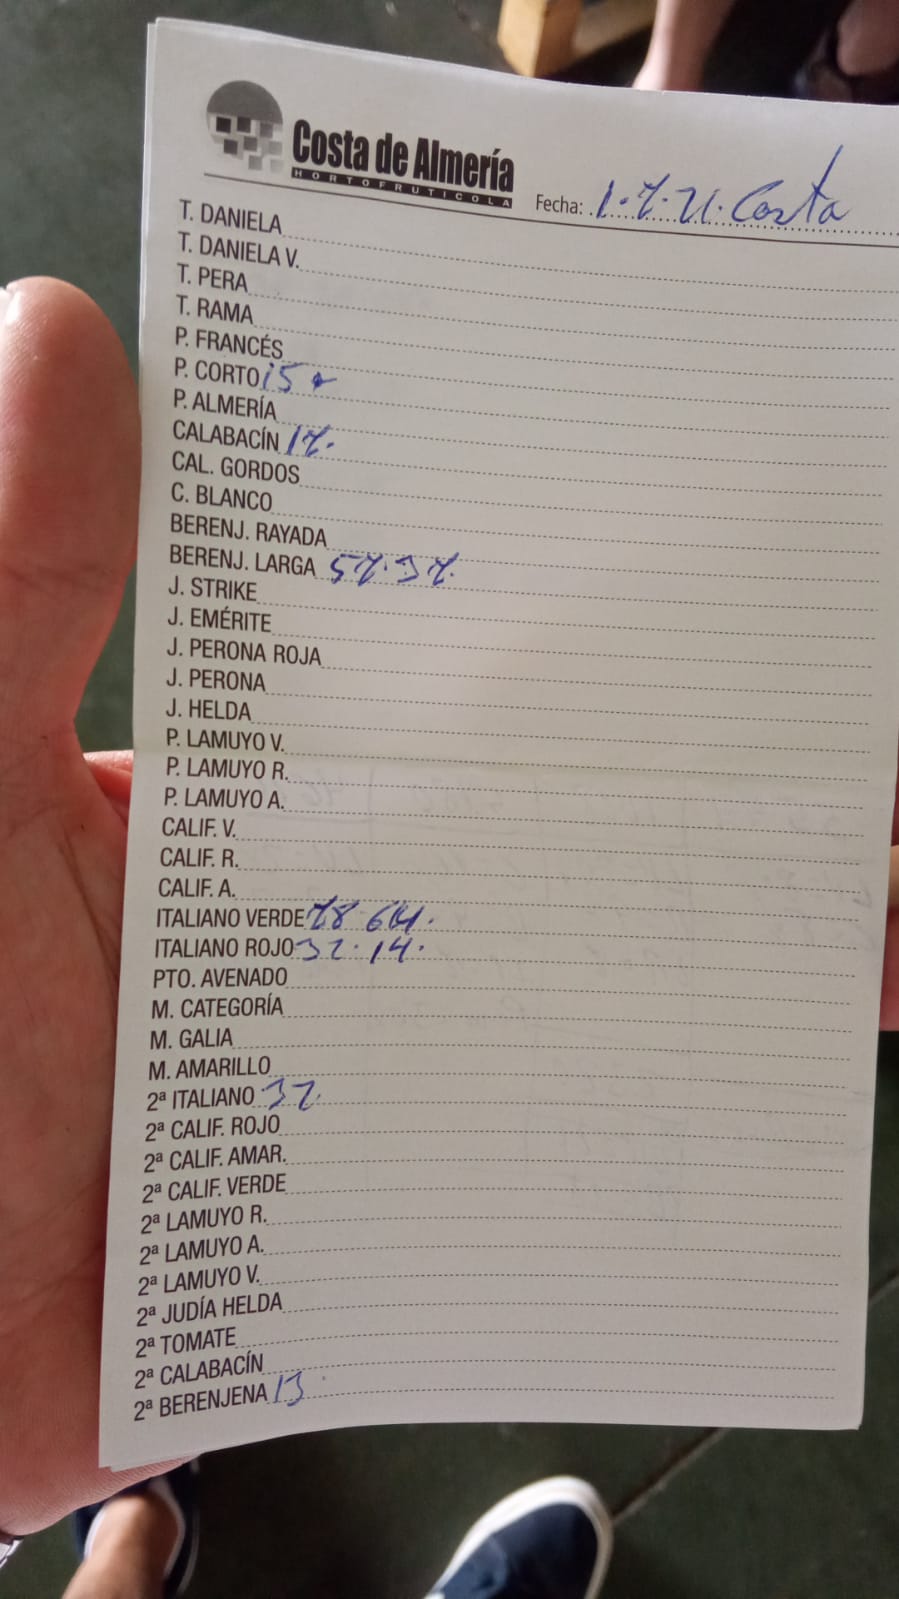 Costa de Almería
HORTOFRUTICOLA
Fecha: 1.7.21. Costa
T. DANIELA
T. DANIELA V.
T. PERA
T. RAMA
P. FRANCÉS
P. CORTO 15
P. ALMERÍA
CALABACÍN 17.
CAL. GORDOS
C. BLANCO
BERENJ. RAYADA
BERENJ. LARGA 57. 37.
J. STRIKE
J. EMÉRITE
J. PERONA ROJA
J. PERONA
J. HELDA
P. LAMUYO V.
P. LAMUYO R.
P. LAMUYO A.
CALIF. V.
CALIF. R.
CALIF. A.
ITALIANO VERDE 78
ITALIANO ROJO 32. 14.
PTO. AVENADO
M. CATEGORÍA
M. GALIA
M. AMARILLO
2ª ITALIANO 32
2ª CALIF. ROJO
2ª CALIF. AMAR.
2ª CALIF. VERDE
2ª LAMUYO R.
2ª LAMUYO A.
2ª LAMUYO V.
2ª JUDÍA HELDA
2ª TOMATE
2ª CALABACÍN
2ª BERENJENA 13